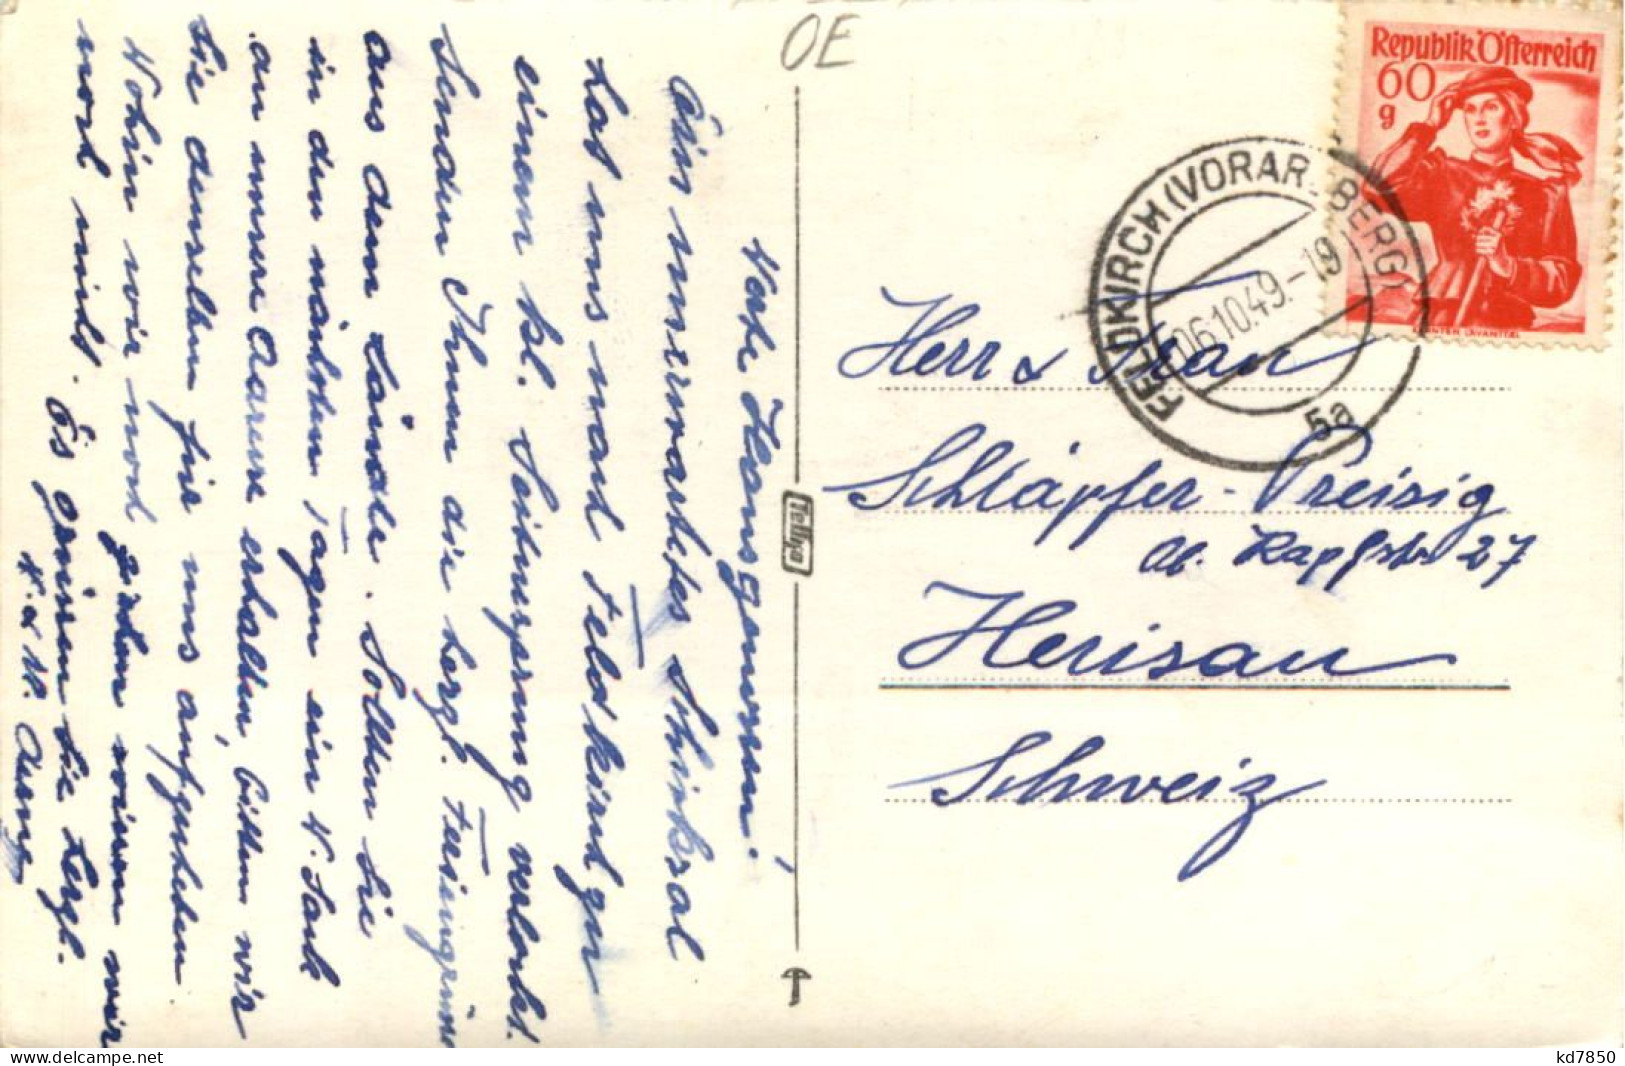 OE
Republik Österreich
60
g
KÄRNTEN LAVANTTAL
FELDKIRCH (VORARLBERG)
06.10.49.-19
5a
Herr & Frau
Schläpfer-Preisig
ob. Kapfstr 27
Herisau
Schweiz
Tellgo
Werte Hausgenossen!
Ein unerwartetes Schicksal
hat uns nach Feldkirch zu
einem kl. Seitensprung verlockt.
Senden Ihnen die herzl. Feriengrüsse
aus dem Ländle. Sollten Sie
in den nächsten Tagen ein N. Sack
an unsere Adresse erhalten, bitten wir
Sie denselben für uns aufzuheben.
Wohin wir noch gehen wissen wir
noch nicht. Es grüssen Sie herzl.
kd7850
ak-ansichtskarten.delcampe.net